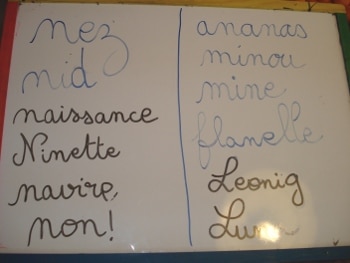 nez
nid
naissance
Ninette
navire,
non!
ananas
minou
mine
flanelle
Leonig